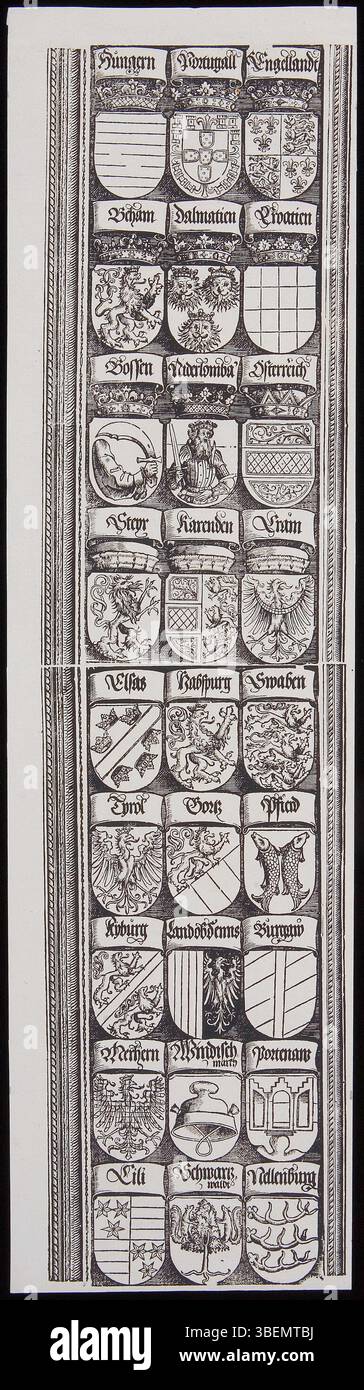 Hungern Portugall Engellandt
Beham Dalmatien Croatien
Bossen Niderlomba Osterreich
Steyr Karenden Crain
Elsas Habspurg Swaben
Tyrol Gortz Pfierd
Kyburg Landobdenns Burgaw
Merhern Windisch march Portenaw
Cili Schwartz waldt Nellenburg
alamy
Image ID: 3BEMTBJ
www.alamy.com